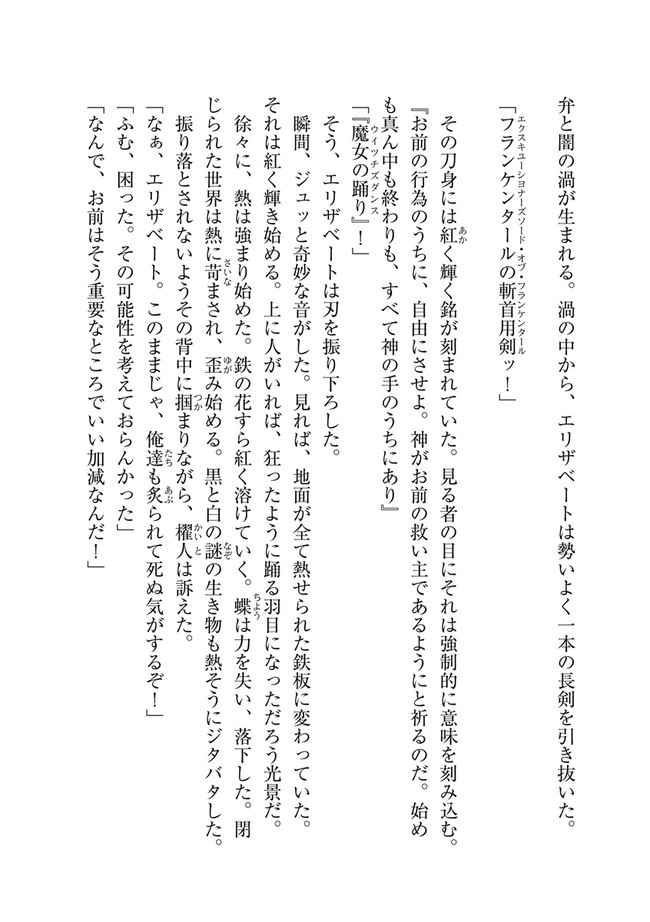 弁と闇の渦が生まれる。渦の中から、エリザベートは勢いよく一本の長剣を引き抜いた。
エクスキューショナーズソード・オブ・フランケンタール
「フランケンタールの斬首用剣ッ！」
その刀身には紅く輝く銘が刻まれていた。見る者の目にそれは強制的に意味を刻み込む。
あか
『お前の行為のうちに、自由にさせよ。神がお前の救い主であるようにと祈るのだ。始め
も真ん中も終わりも、すべて神の手のうちにあり』
ウイッチズダンス
「『魔女の踊り』！」
そう、エリザベートは刃を振り下ろした。
瞬間、ジュッと奇妙な音がした。見れば、地面が全て熱せられた鉄板に変わっていた。
それは紅く輝き始める。上に人がいれば、狂ったように踊る羽目になっただろう光景だ。
徐々に、熱は強まり始めた。鉄の花すら紅く溶けていく。蝶は力を失い、落下した。閉
ちよう
じられた世界は熱に苛まされ、歪み始める。黒と白の謎の生き物も熱そうにジタバタした。
さいな ゆが なぞ
振り落とされないようその背中に掴まりながら、櫂人は訴えた。
つか かいと
「なぁ、エリザベート。このままじゃ、俺達も炙られて死ぬ気がするぞ！」
たち あぶ
「ふむ、困った。その可能性を考えておらんかった」
「なんで、お前はそう重要なところでいい加減なんだ！」